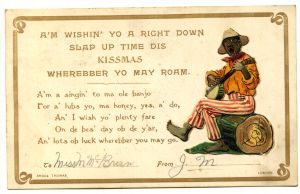 A'M WISHIN' YO A RIGHT DOWN
SLAP UP TIME DIS
KISSMAS
WHEREBBER YO MAY ROAM.
A'm a singin' to ma ole banjo
For a' lubs yo, ma honey, yea, a' do,
An' I wish yo' plenty fare
On de bes' day ob de y'ar,
An' lots ob luck wherebber you may go.
To Miss M. McBreen From J. M
ANGUS THOMAS, LONDON.